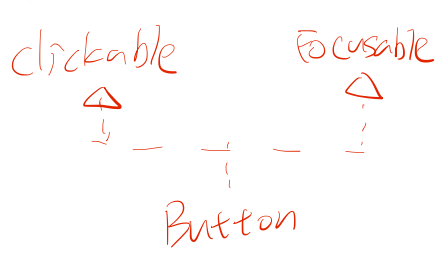 clickable
Focusable
Button